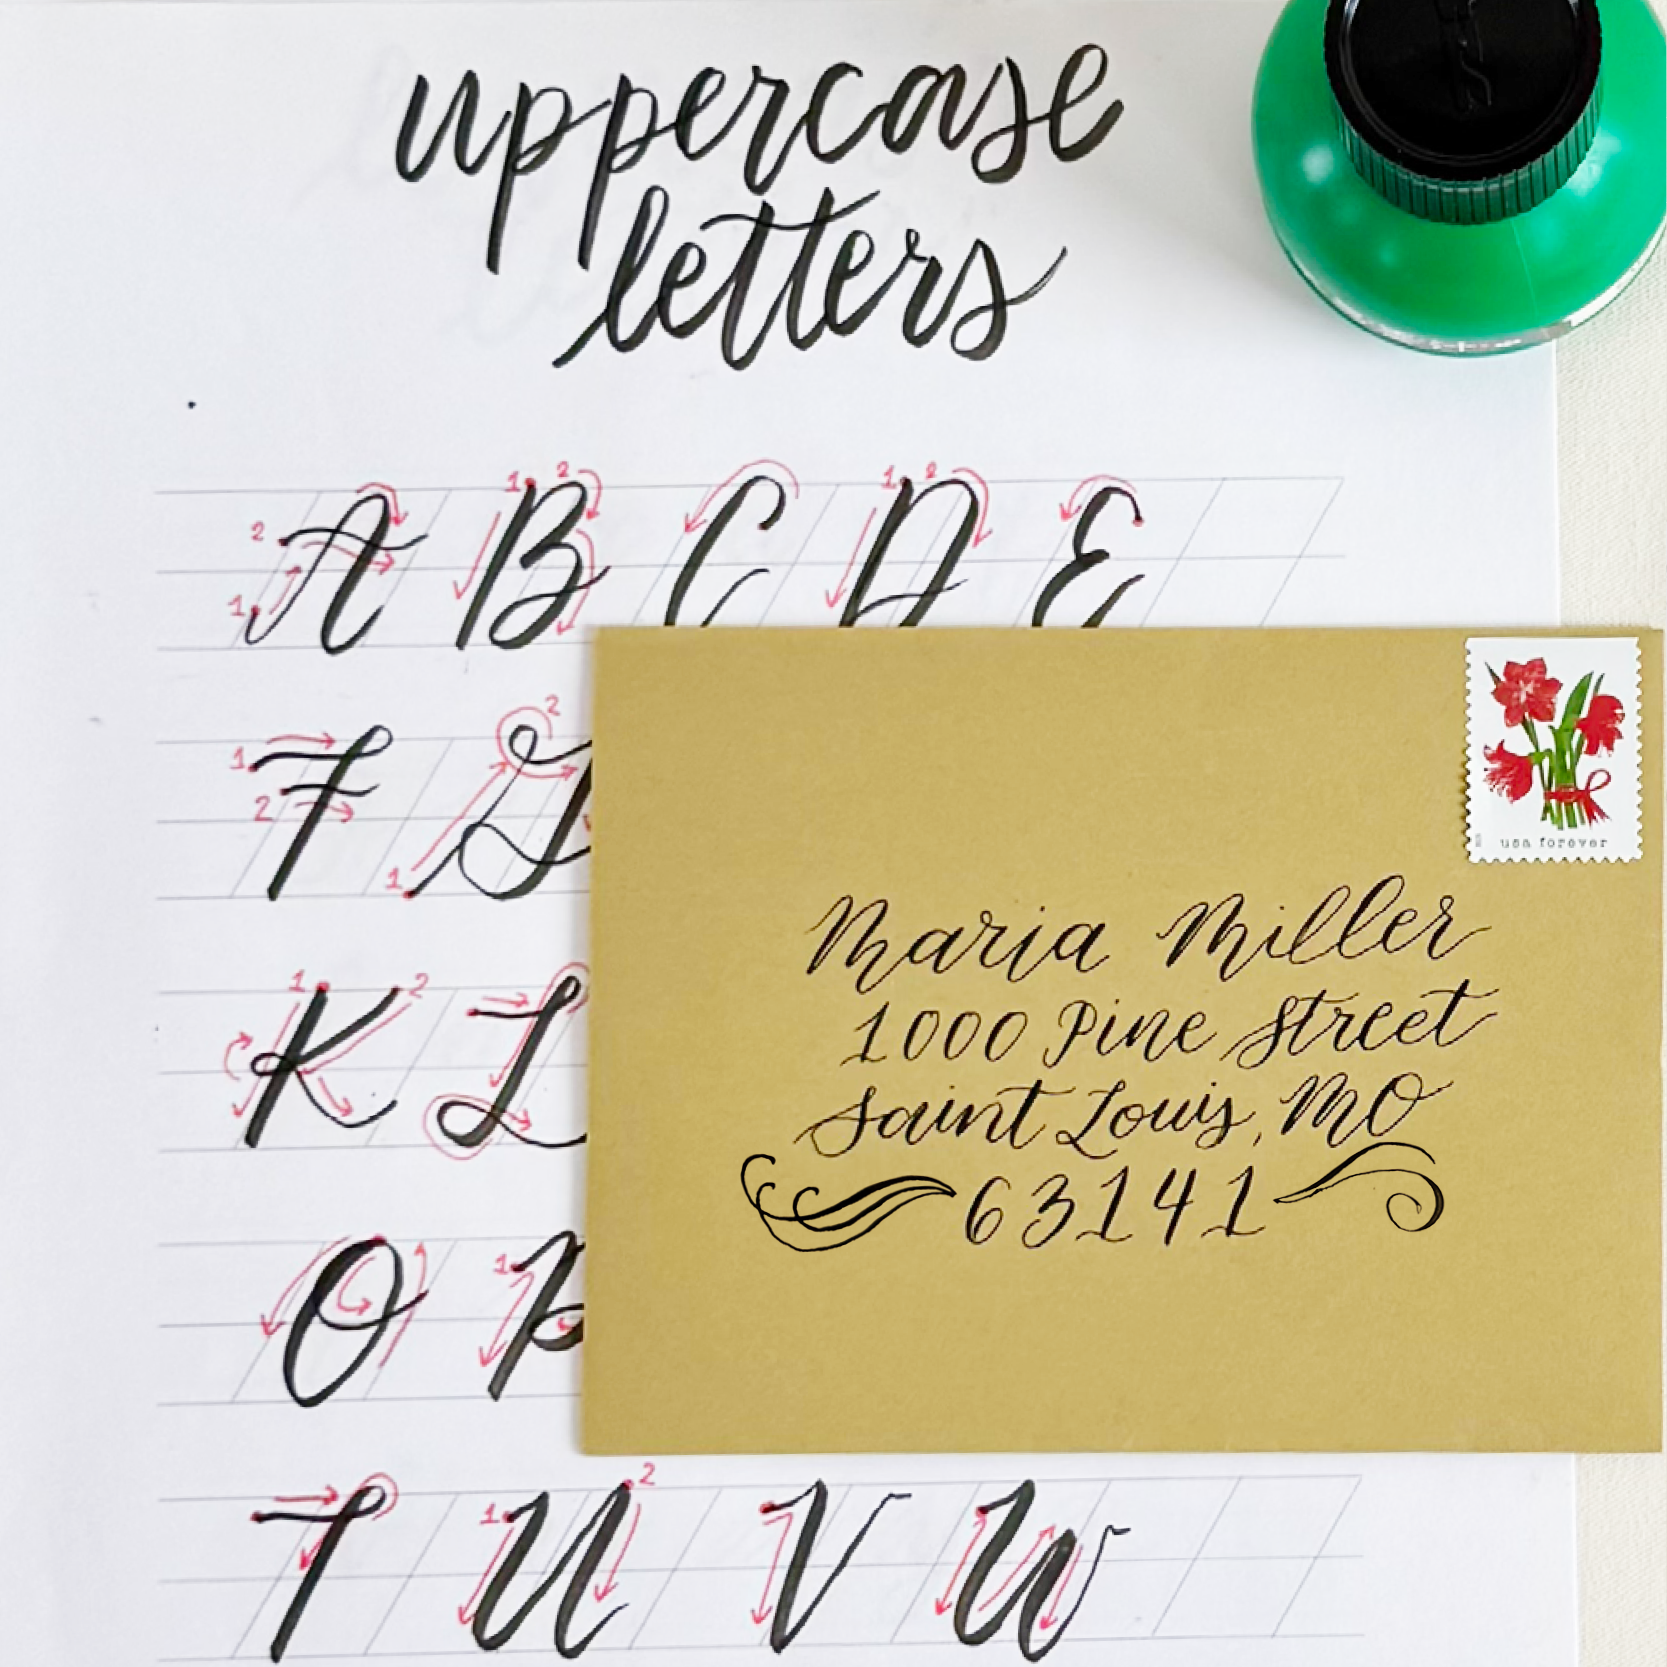 uppercase
letters
1 2 A 1 2 B C 1 2 D E
1 2 F 1 2 G
1 2 K L
O 1 P
T 1 2 U V W
usa forever
Maria Miller
1000 Pine Street
Saint Louis, MO
63141